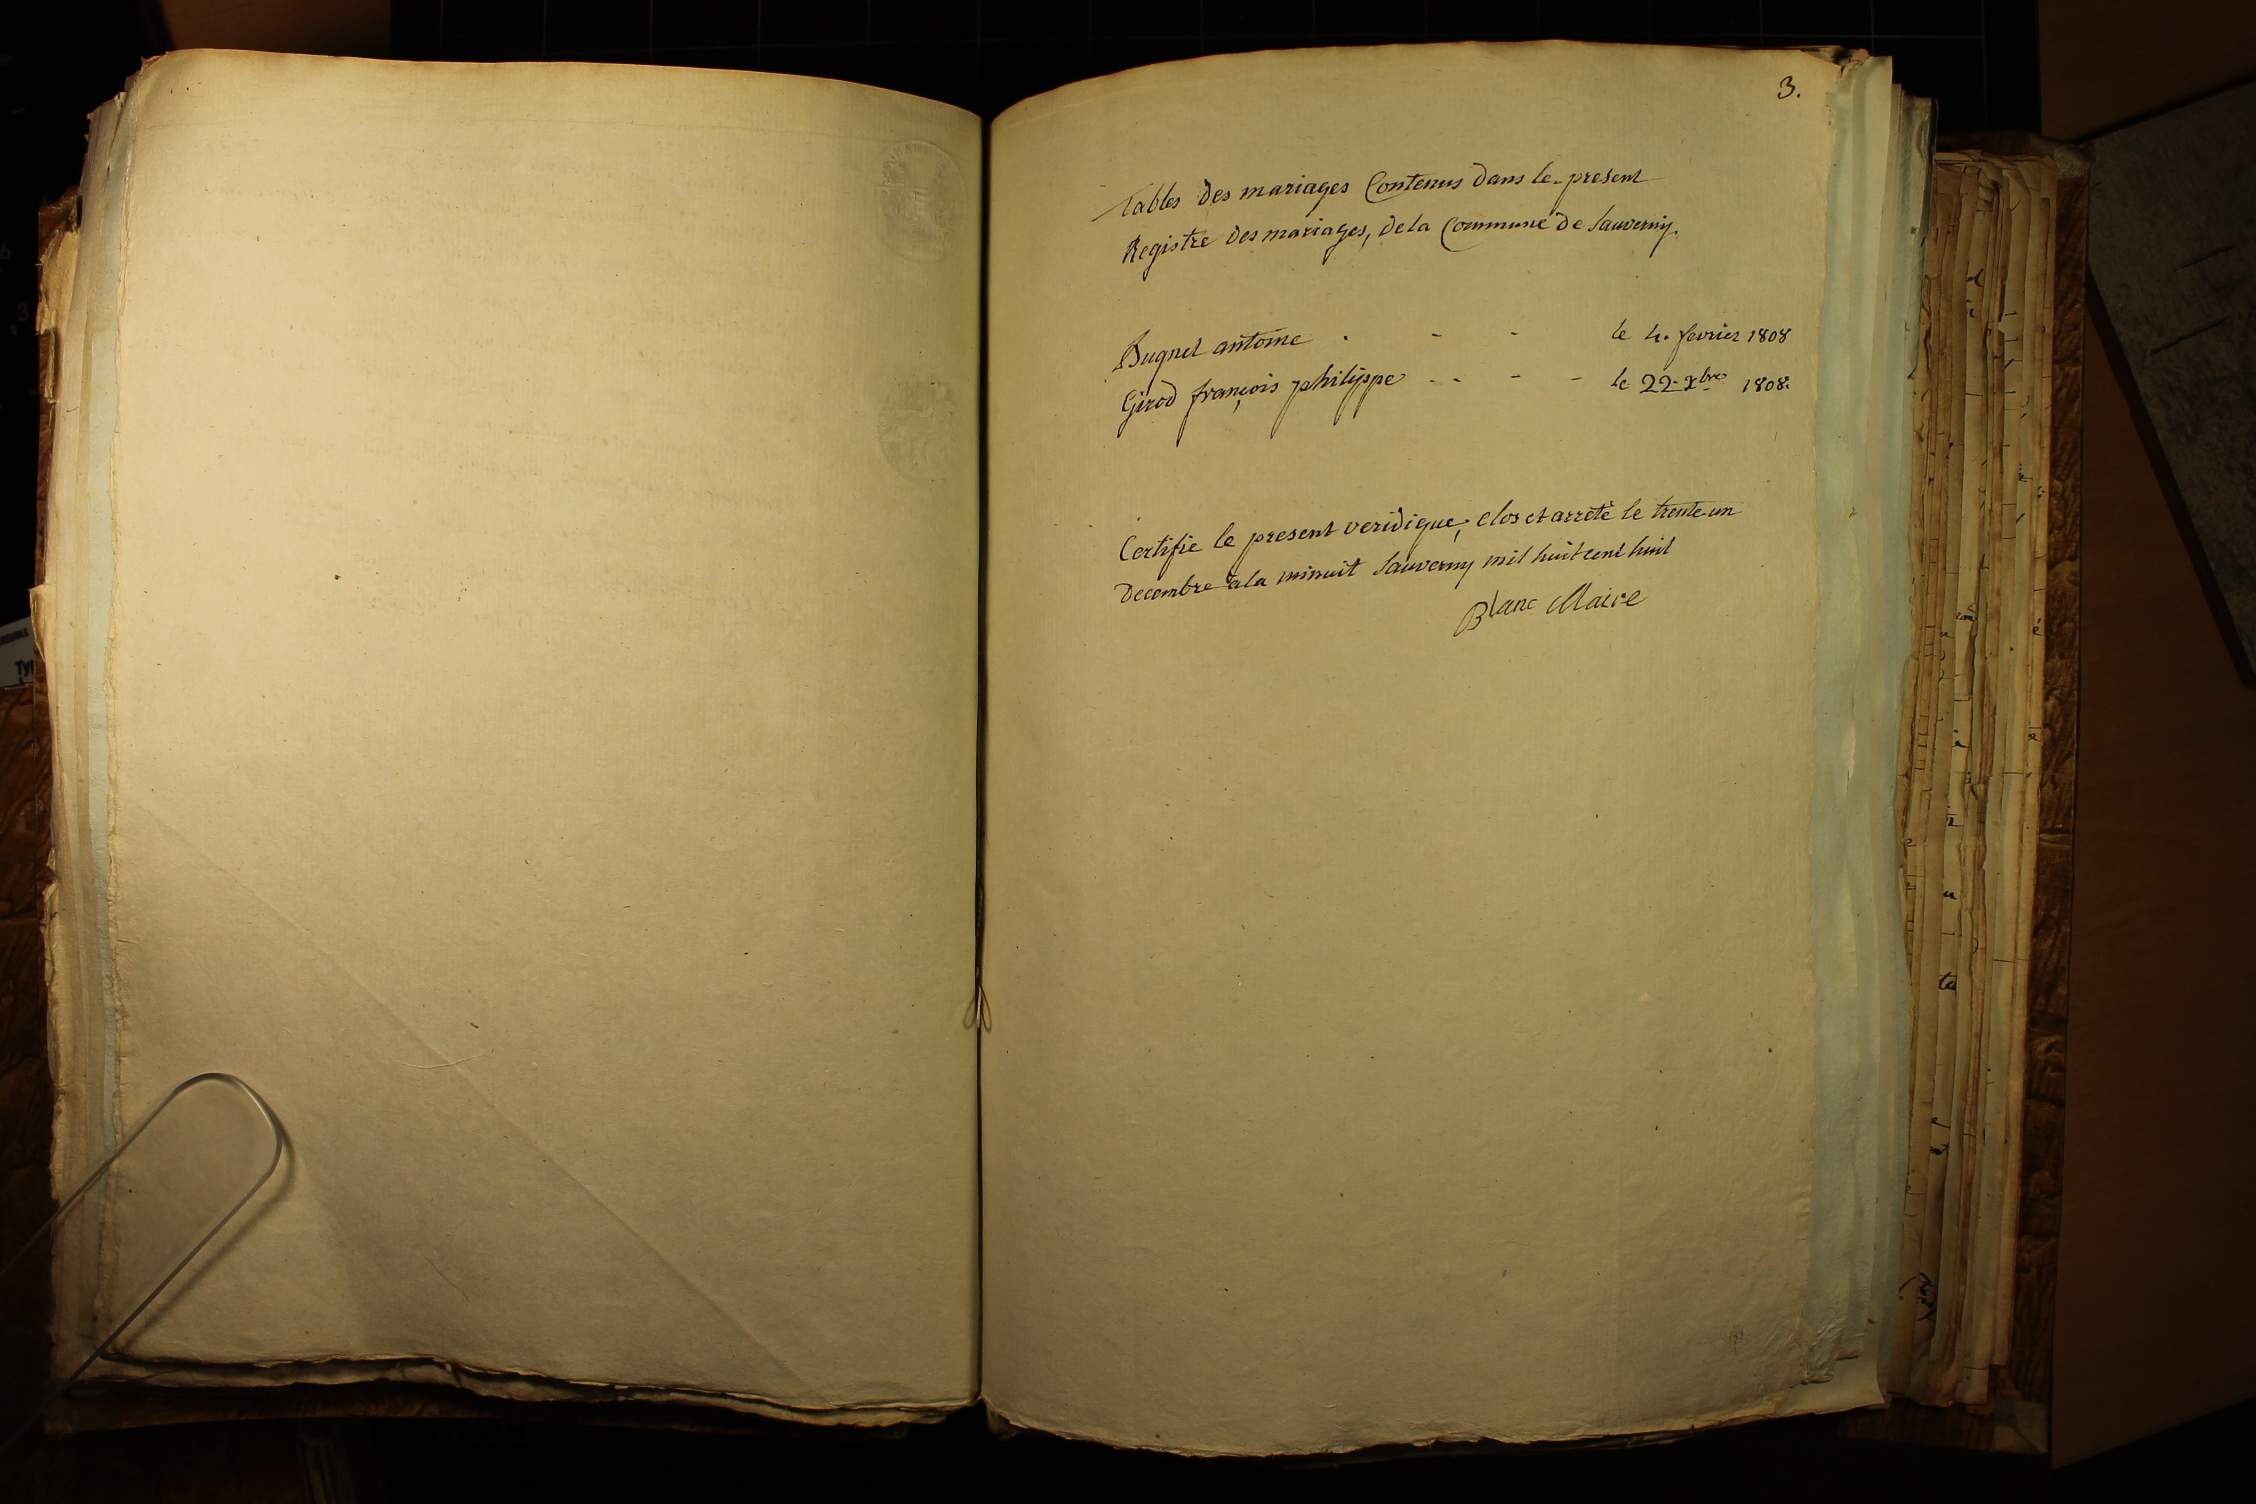 3.
Tables des mariages Contenus dans le present
Registre des mariages, de la Commune de Sauverny.
Buguet antoine . - - le 4. fevrier 1808
Girod françois philippe - - - - le 22 - xbre 1808.
Certifie le present veridique, clos et arreté le trente un
Decembre à la minuit Sauverny mil huit cent huit
Blanc Maire